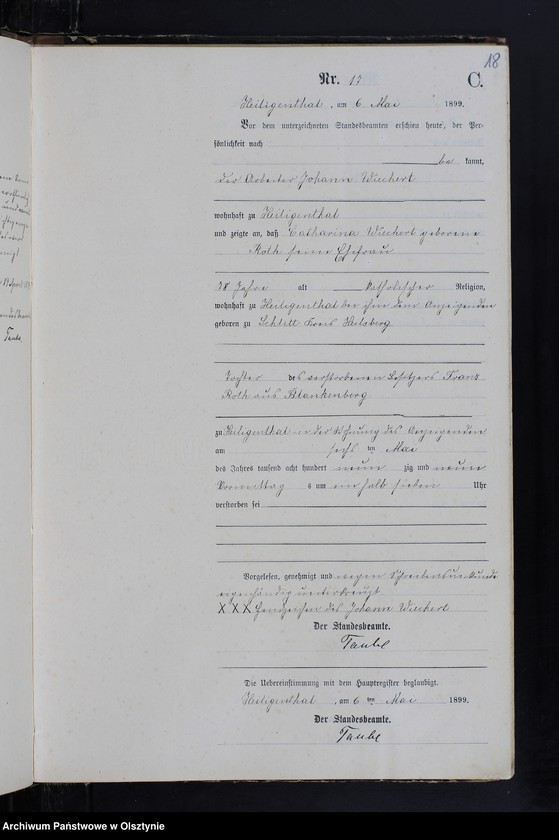 18
Nr. 17 C.
Heiligenthal, am 6 Mai 1899.
Vor dem unterzeichneten Standesbeamten erschien heute, der Per-
sönlichkeit nach
be kannt,
der Arbeiter Johann Wiechert
wohnhaft zu Heiligenthal
und zeigte an, daß Catharina Wiechert geborene
Roth seine Ehefrau
Jahre alt katholischer Religion,
wohnhaft zu Heiligenthal bei ihm dem Anzeigenden
geboren zu Schlitt Kreis Heilsberg
Tochter des verstorbenen Besitzers Franz
Roth aus Blankenberg
zu Heiligenthal in der Wohnung des Anzeigenden
am sechs ten Mai
des Jahres tausend acht hundert neun zig und neun
Vormittag s um ein halb sieben Uhr
verstorben sei
Vorgelesen, genehmigt und wegen Schreibensunkunde
eigenhändig unterkreuzt
X X X Handzeichen des Johann Wiechert
Der Standesbeamte.
Taube
Die Uebereinstimmung mit dem Hauptregister beglaubigt.
Heiligenthal, am 6 ten Mai 1899.
Der Standesbeamte.
Taube
Taube
Archiwum Państwowe w Olsztynie